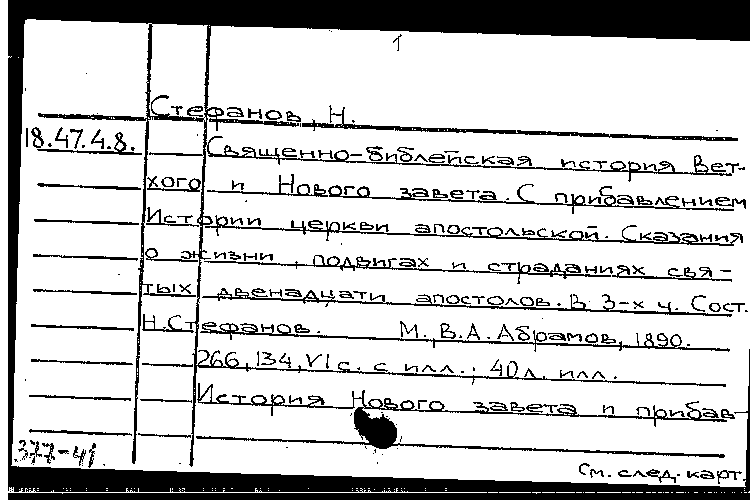 1
Стефанов, Н.
18.47.4.8.
Священно-библейская история Вет-
хого и Нового завета. С прибавлением
Истории церкви апостольской. Сказания
о жизни, подвигах и страданиях свя-
тых двенадцати апостолов. В 3-х ч. Сост.
Н. Стефанов. М., В.А. Абрамов, 1890.
266, 134, VI с. с илл.; 40 л. илл.
История Нового завета и прибав-
377-41
См. след. карт.